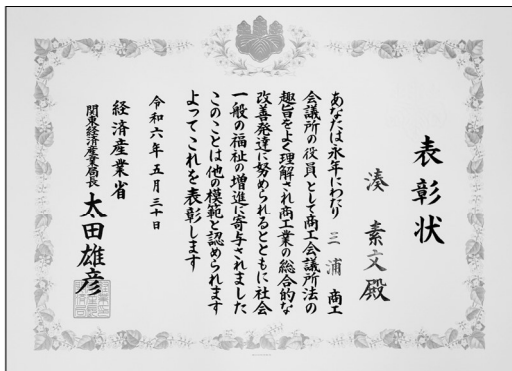 表彰状
湊 素文殿
あなたは永年にわたり 三浦 商工
会議所の役員として商工会議所法の
趣旨をよく理解され商工業の総合的な
改善発達に努められるとともに社会
一般の福祉の増進に寄与されました
このことは他の模範と認められます
よってこれを表彰します
令和六年五月三十日
経済産業省
関東経済産業局長 太田雄彦